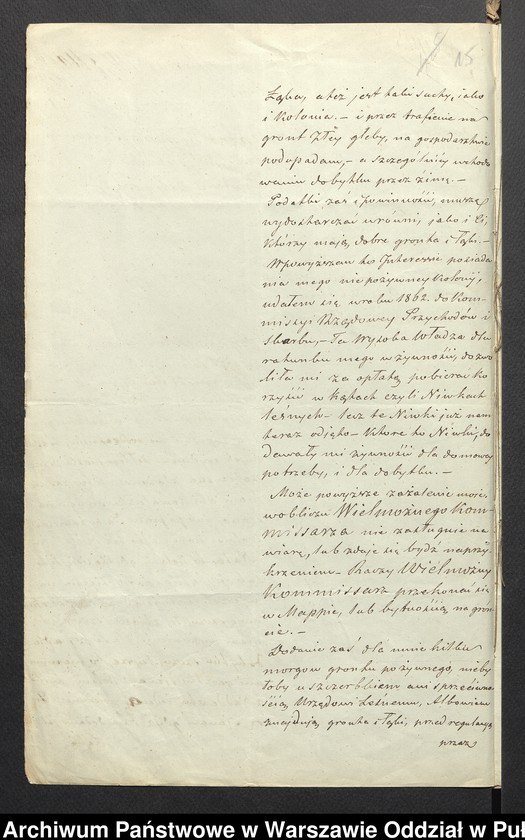 15
Łąka, a też jest taki suchy, jako
i Kolonia. – i przez trafienie na
gront Złey gleby, na gospodarstwie
podupadam, – a szczególniey wchodo
waniu dobytku przez zimę. –
Podatki zaś i powinności, muszę
wydostarczać wrówni, jako i Ci,
Którzy mają dobre gronta i Łąki. –
Wpowyższem to Interessie posiada
nia mego niepożywney Kolonij,
udałem się wroku 1862. do Kom-
missyi Rządowey Przychodów i
Skarbu, – Ta Wysoka Władza dla
ratunku mego w żywności, dozwo
liła mi za opłatą pobierać Ko
rzyści w Kątach czyli Niwkach
leśnych – lecz te Niwki już nam
teraz odjęto – Które to Niwki, do
dawały mi żywność dla domowey
potrzeby, i dla dobytku. –
Może powyższe zażalenie moie,
wobliczu Wielmożnego Kom-
missarza nie zasługuie na
wiarę, lub zdaje się bydź naprzy
krzeniem – Raczy Wielmożny
Kommissarz przekonać się
w Mappie, lub bytnością na gron
cie. –
Dodanie zaś dla mnie kilku
morgów grontu pożywnego, nieby
łoby uszczerbkiem ani sprzeciwno
ścią Urzędowi Leśnemu, Albowiem
znajdują gronta i Łąki, przed regulacyą
przez
Archiwum Państwowe w Warszawie Oddział w Puł